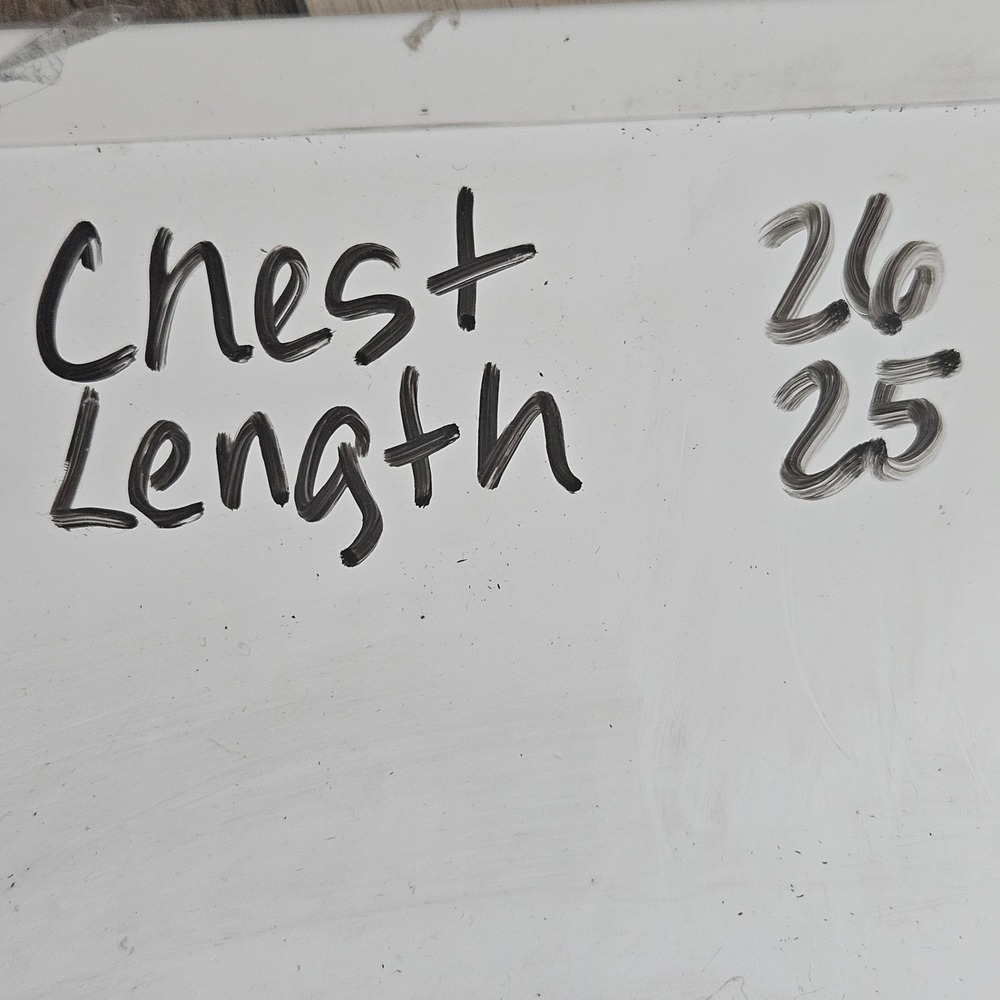 Chest 26
Length 25